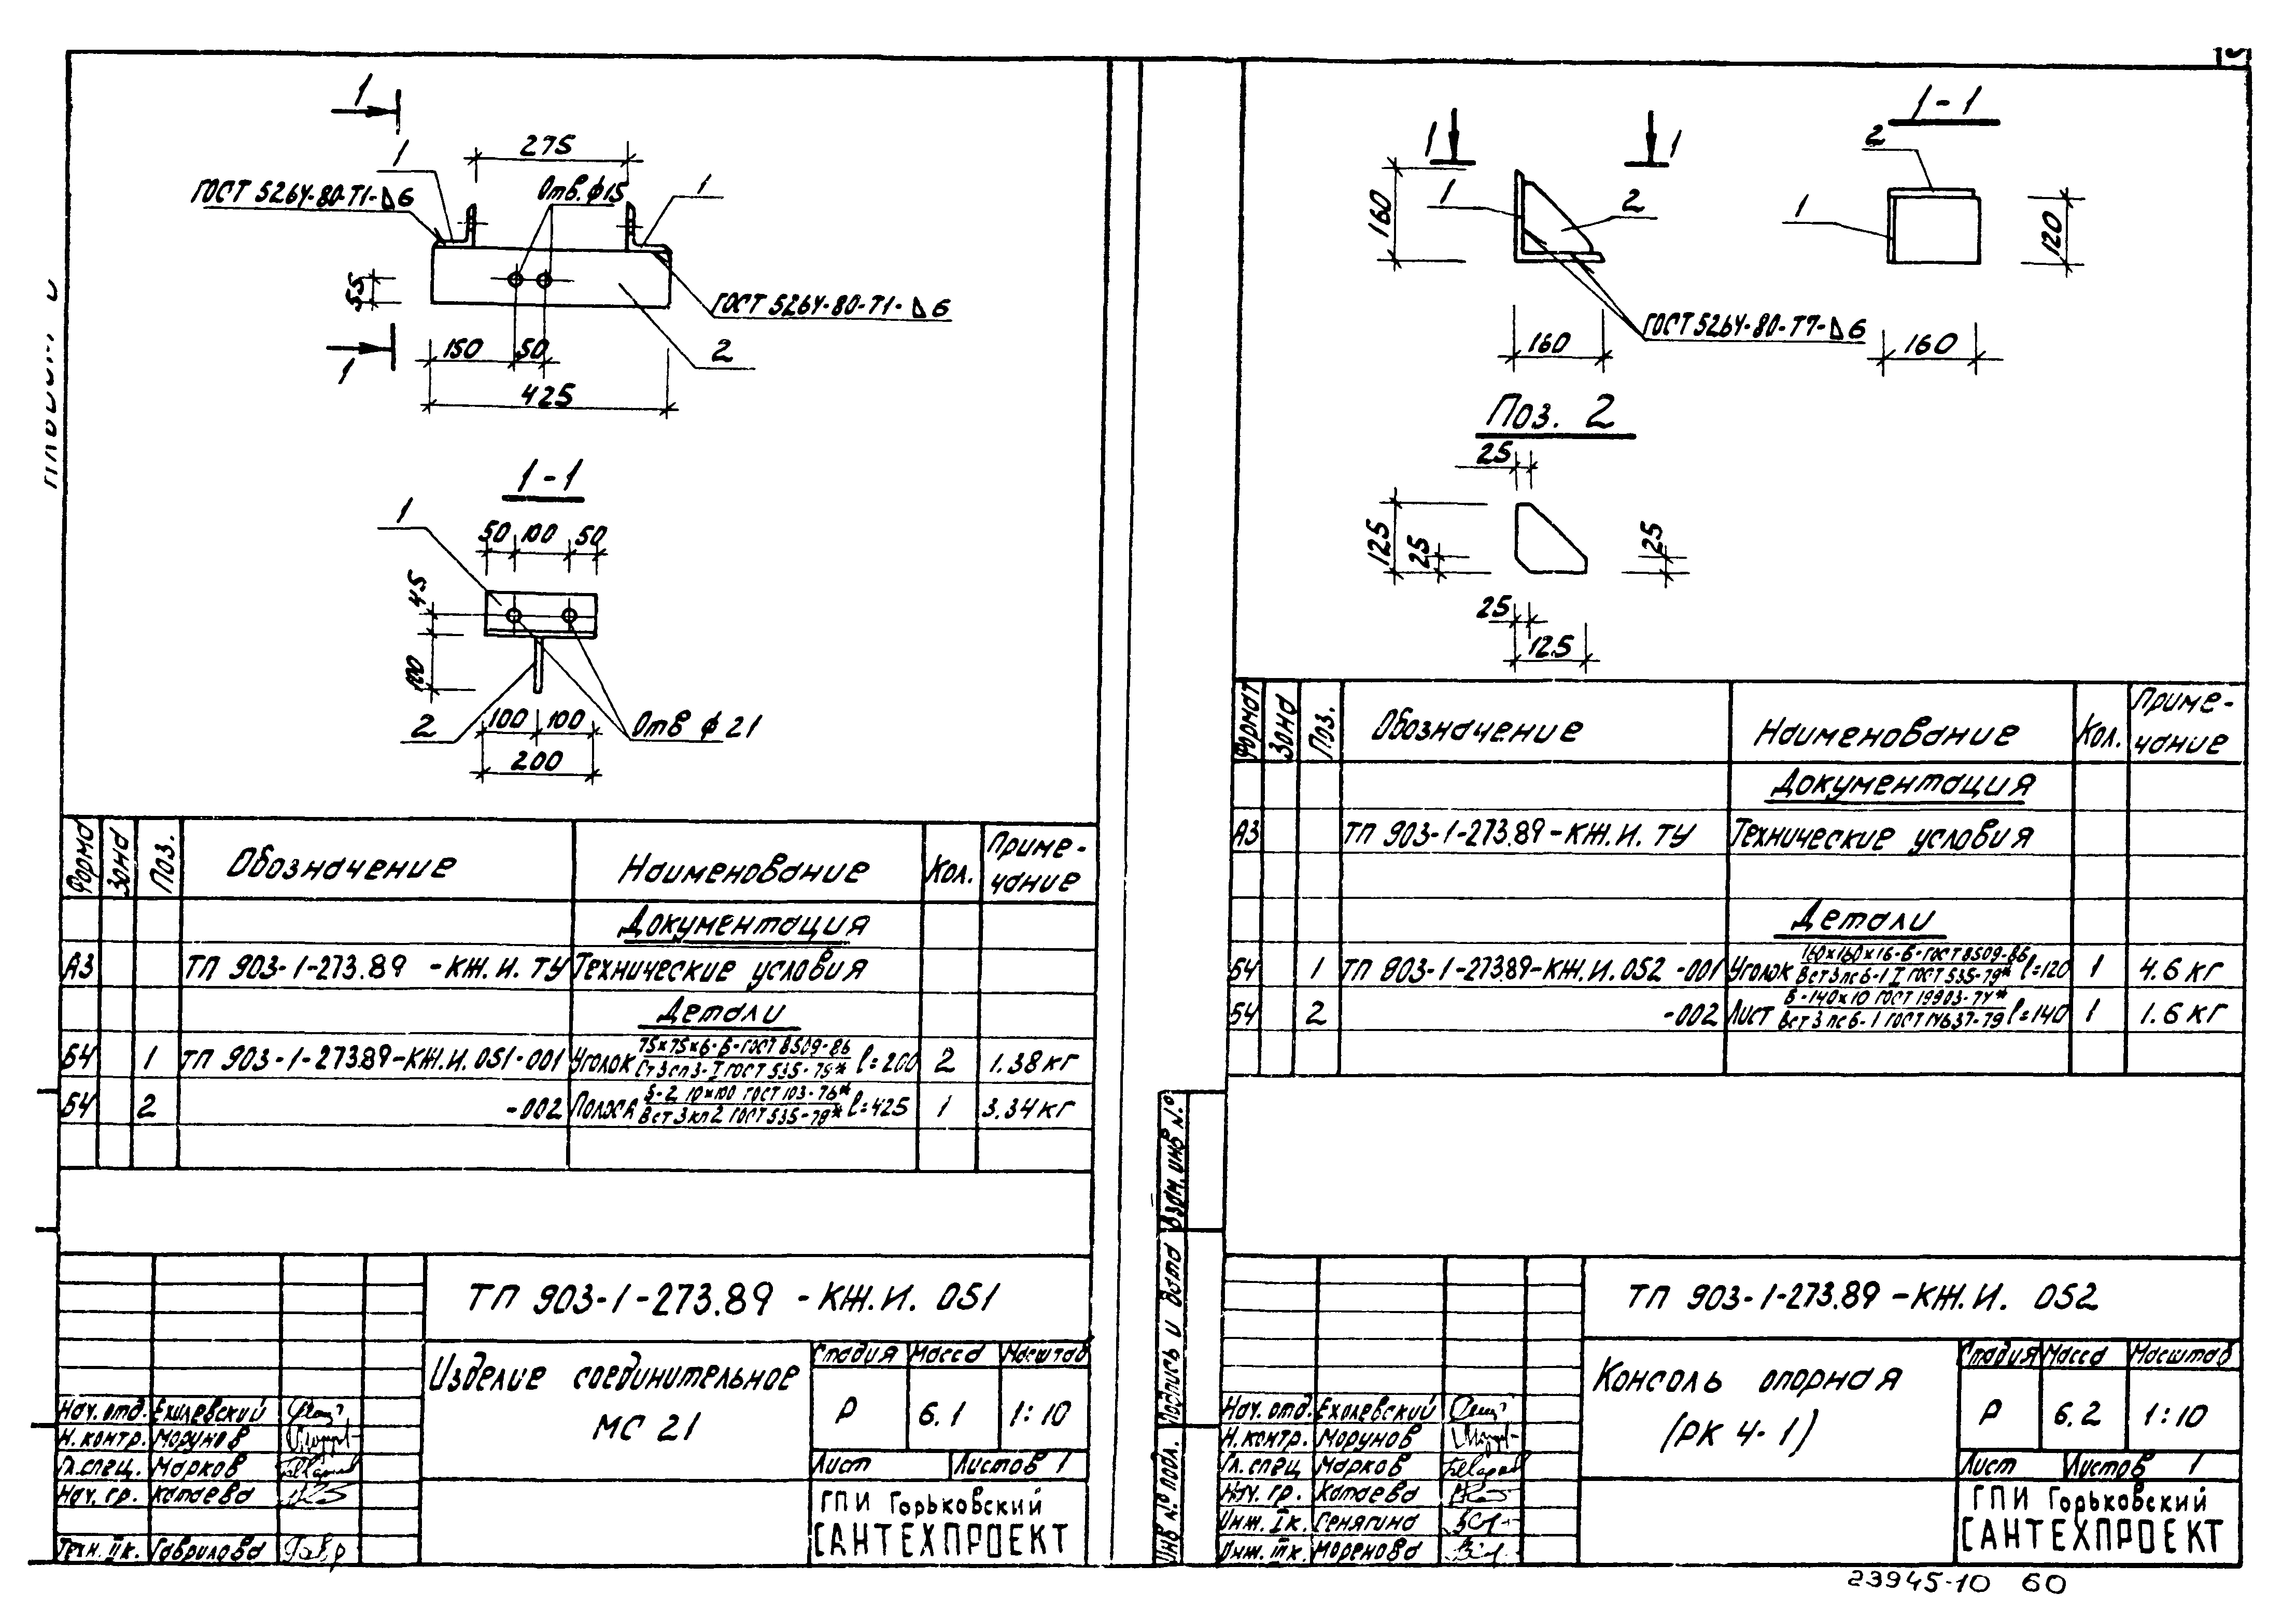 1
275
1
ГОСТ 5264-80-Т1-△6
Отв. ф15
1
55
ГОСТ 5264-80-Т1-△6
150
50
2
1
425
1-1
1
50 100 50
45
100
2
100 100
Отв ф 21
200
Форма
Зона
Поз.
Обозначение
Наименование
Кол.
Приме-
чание
Документация
А3 ТП 903-1-273.89 -КЖ.И. ТУ Технические условия
Детали
Б4 1 ТП 903-1-273.89-КЖ.И. 051-001 Уголок 75х75х6-Б-ГОСТ 8509-86 ℓ=200 2 1.38кг
Ст3сп3-I ГОСТ 535-79*
Б4 2 -002 Полоса Б-2 10х100 ГОСТ 103-76* ℓ=425 1 3.34кг
Вст3кп2 ГОСТ 535-79*
ТП 903-1-273.89 -КЖ.И. 051
Изделие соединительное
МС 21
Стадия Масса Масштаб
Р 6.1 1:10
Лист Листов 1
ГПИ Горьковский
САНТЕХПРОЕКТ
Нач. отд. Ехилевский
Н. контр. Морунов
Гл. спец. Марков
Нач. гр. Катаева
Техн. IIк. Гаврилова
1 1
1-1
2
160
1
2
1
120
ГОСТ 5264-80-Т7-△6
160
160
Поз. 2
25
125
25
25
25
125
Формат
Зона
Поз.
Обозначение
Наименование
Кол.
Приме-
чание
Документация
А3 ТП 903-1-273.89-КЖ.И. ТУ Технические условия
Детали
Б4 1 ТП 903-1-273.89-КЖ.И. 052 -001 Уголок 160х160х16-Б-ГОСТ 8509-86 ℓ=120 1 4.6 кг
Вст3пс6-1 I ГОСТ 535-79*
Б4 2 -002 Лист Б-140х10 ГОСТ 19903-74* ℓ=140 1 1.6 кг
Вст3пс6-1 ГОСТ 14637-79
Взам. инв №
Подпись и дата
Инв № подл.
ТП 903-1-273.89 -КЖ.И. 052
Консоль опорная
(РК 4-1)
Стадия Масса Масштаб
Р 6.2 1:10
Лист Листов 1
ГПИ Горьковский
САНТЕХПРОЕКТ
Нач. отд. Ехилевский
Н. контр. Морунов
Гл. спец Марков
Нач. гр. Катаева
Инж. Iк. Генягина
Инж. IIIк. Моренова
23945-10 60